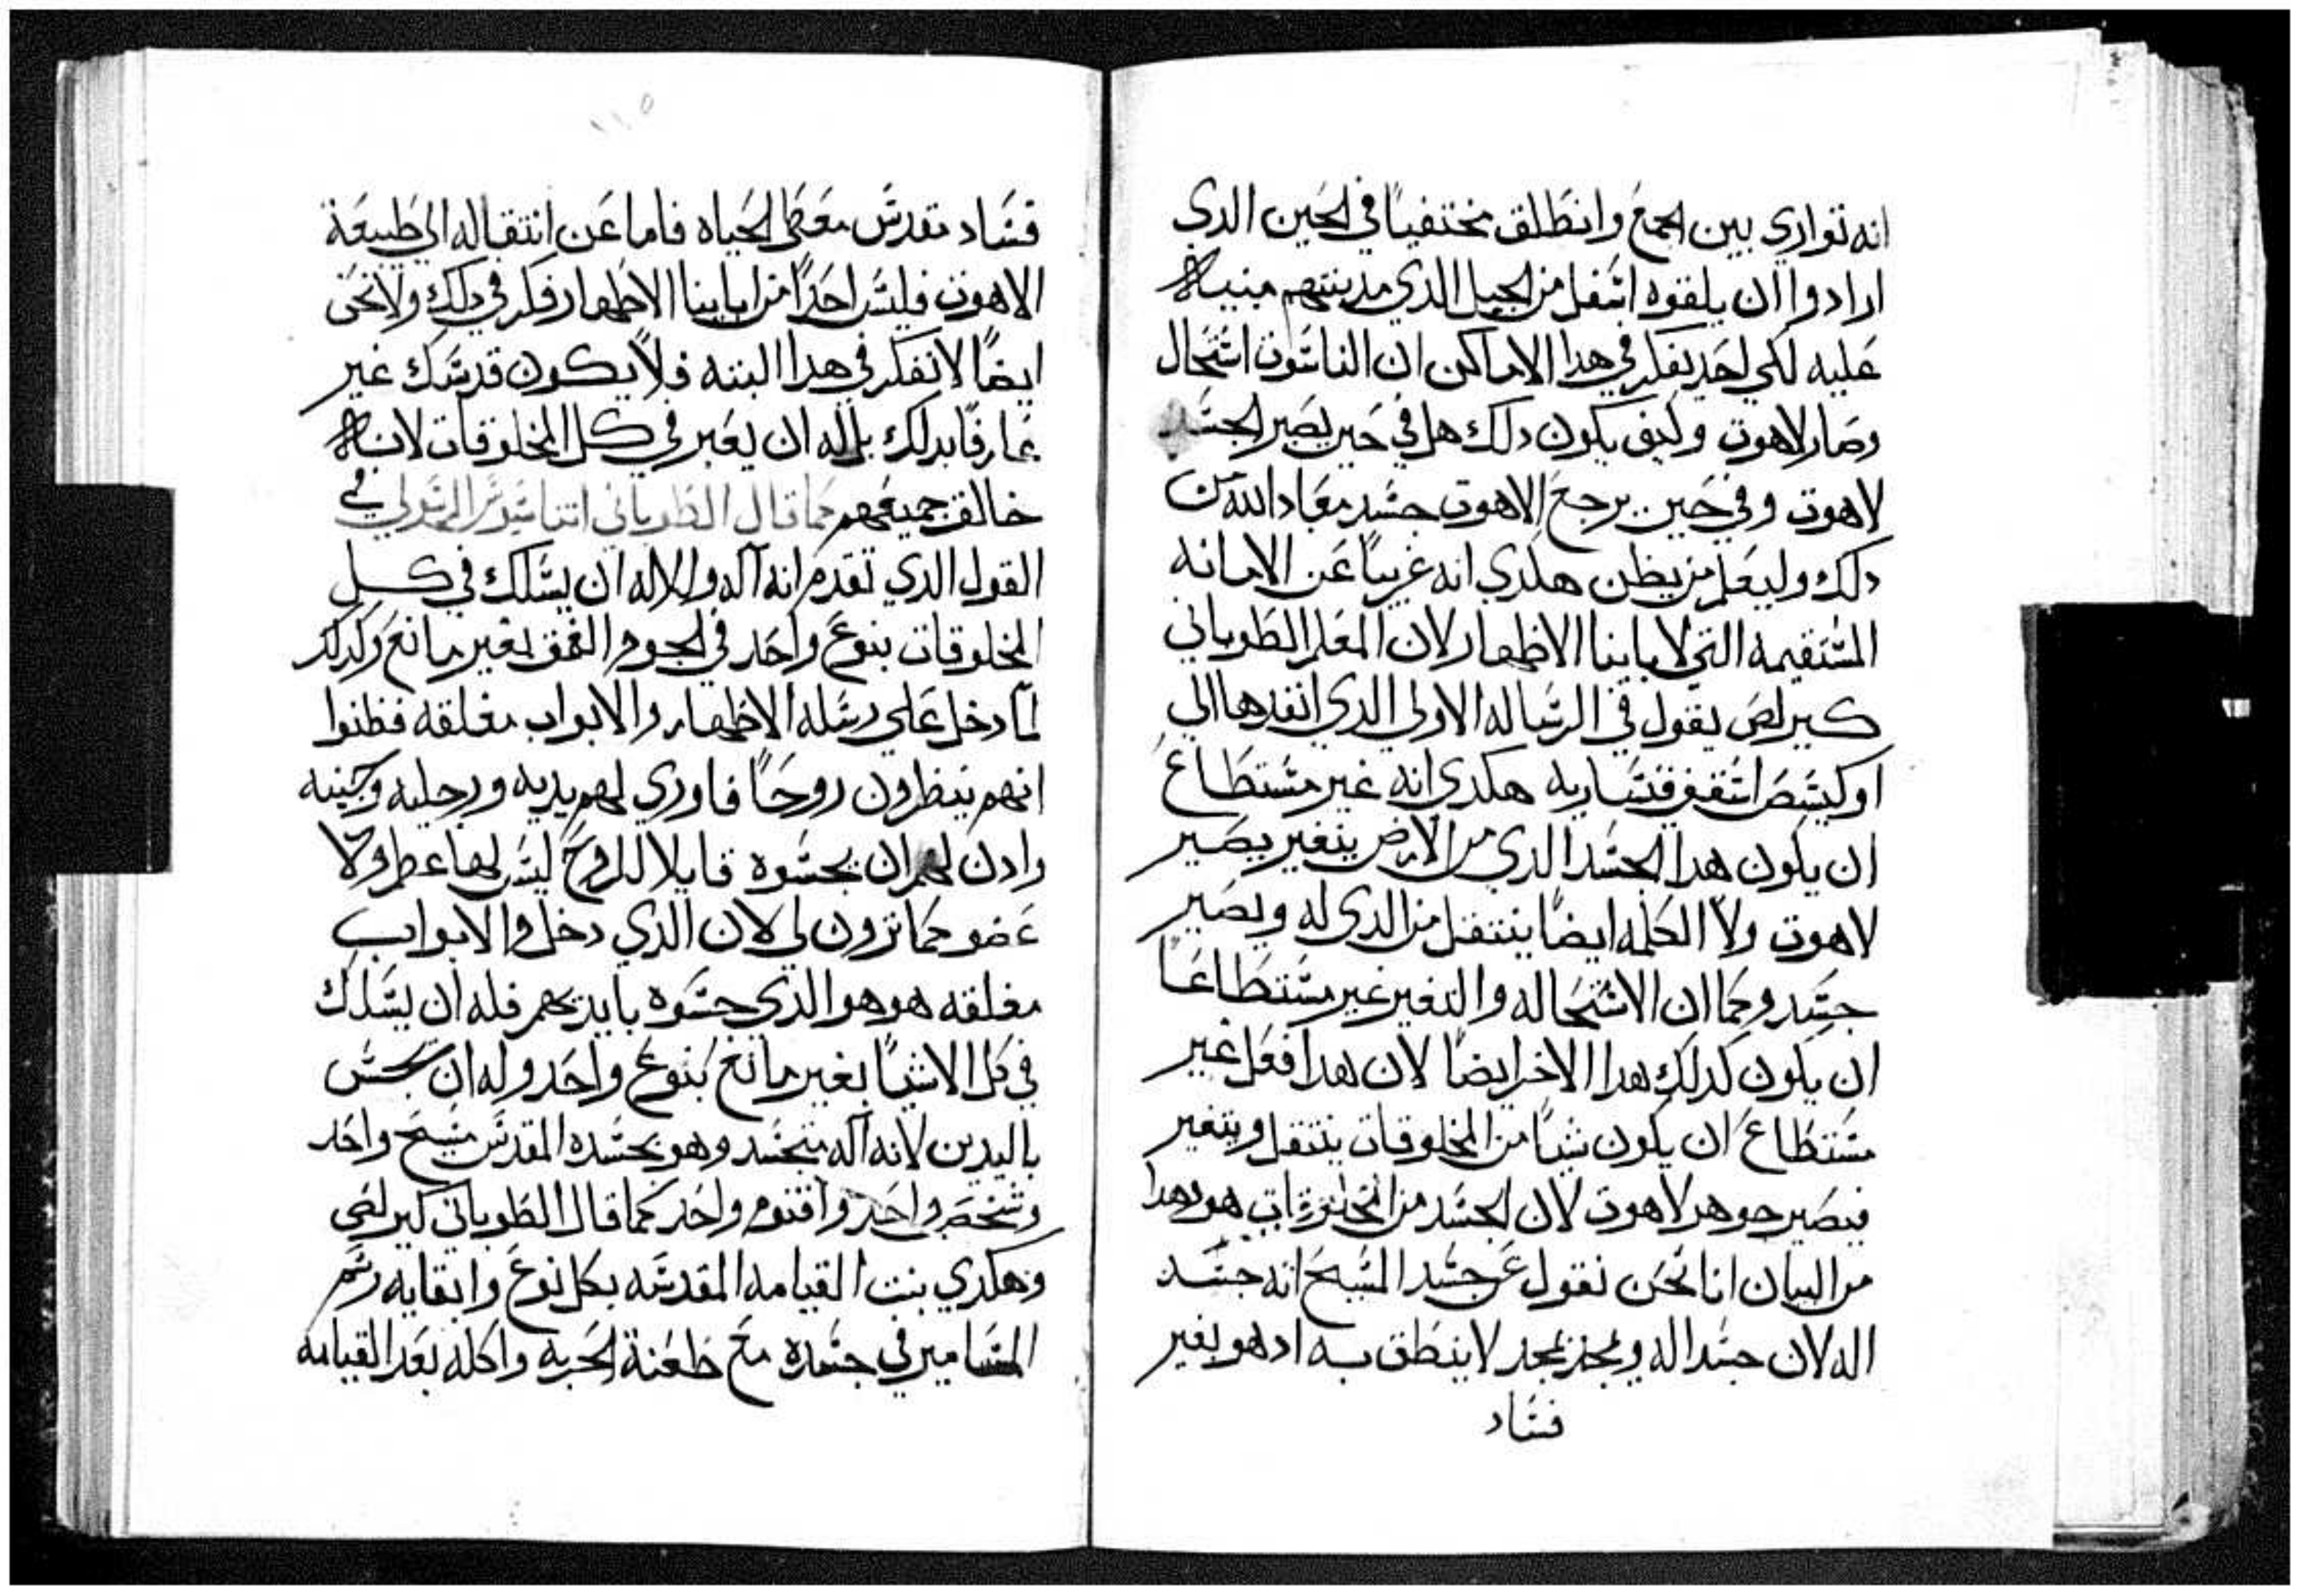 انه تواري بين الجمع وانطلق مختفيًا في الحين الدي
ارادوا ان يلقوه اسفل من الجبل الدي مدينتهم مبنيه
عليه لكي احد يفكر في هدا الاماكن ان الناسوت استحال
وصار لاهوت وكيف يكون دلك هل في حين يصير الجسد
لاهوت وفي حين يرجع الاهوت جسد معاد الله من
دلك وليعلم من يظن هكدي انه غريبًا عن الامانه
المستقيمه التي لاباينا الاطهار لان المعلم الطوباني
كيرلص يقول في الرساله الاولي الدي انفدها الي
اوكيسص اسقف قتساريه هكدي انه غير مستطاع
ان يكون هدا الجسد الدي من الارض يتغير يصير
لاهوت ولا الكلمه ايضًا ينتقل من الدي له ويصير
جسد وكما ان الاستحاله والتغير غير مستطاعًا
ان يكون كدلك هدا الاخر ايضًا لان هدا فعل غير
مستطاع ان يكون شيًا من المخلوقات ينتقل ويتغير
فيصير جوهر لاهوت لان الجسد من المخلوقات هو بهدا
من البيان انا نحن نقول عن جسد المسيح انه جسد
اله لان جسد اله وممجد بمجد لا ينطق به اد هو بغير
فساد
١١٥
فساد مقدس معطي الحياه فاما عن انتقاله الي طبيعة
الاهوت فليس احدًا من اباينا الاطهار فكر في دلك ولا نحن
ايضًا لا نفكر في هدا البته فلا يكون قدسك غير
عارفًا بدلك بل له ان يعبر في كل المخلوقات لانه
خالق جميعهم كما قال الطوباني اتناسيوس الرسولي في
القول الدي تقدم انه اله والاله ان يسلك في كل
المخلوقات بنوع واحد في الجو والعمق بغير مانع وكدلك
لما دخل علي رسله الاطهار والابواب مغلقه فظنوا
انهم ينظرون روحًا فاوري لهم يديه ورجليه وجنبه
وادن لهم ان يجسوه قايلا للروح ليس لها عظم ولا
عضو كما ترون لي لان الدي دخل والابواب
مغلقه هو هو الدي جسوه بايديهم فله ان يسلك
في كل الاشيا بغير مانع بنوع واحد وله ان يجس
باليدين لانه اله متجسد وهو بجسده المقدس مسيح واحد
وشخص واحد واقنوم واحد كما قال الطوباني كيرلص
وهكدي بنت القيامه المقدسه بكل نوع وابقايه رسم
المسامير في جسده مع طعنة الحربه واكله بعد القيامه